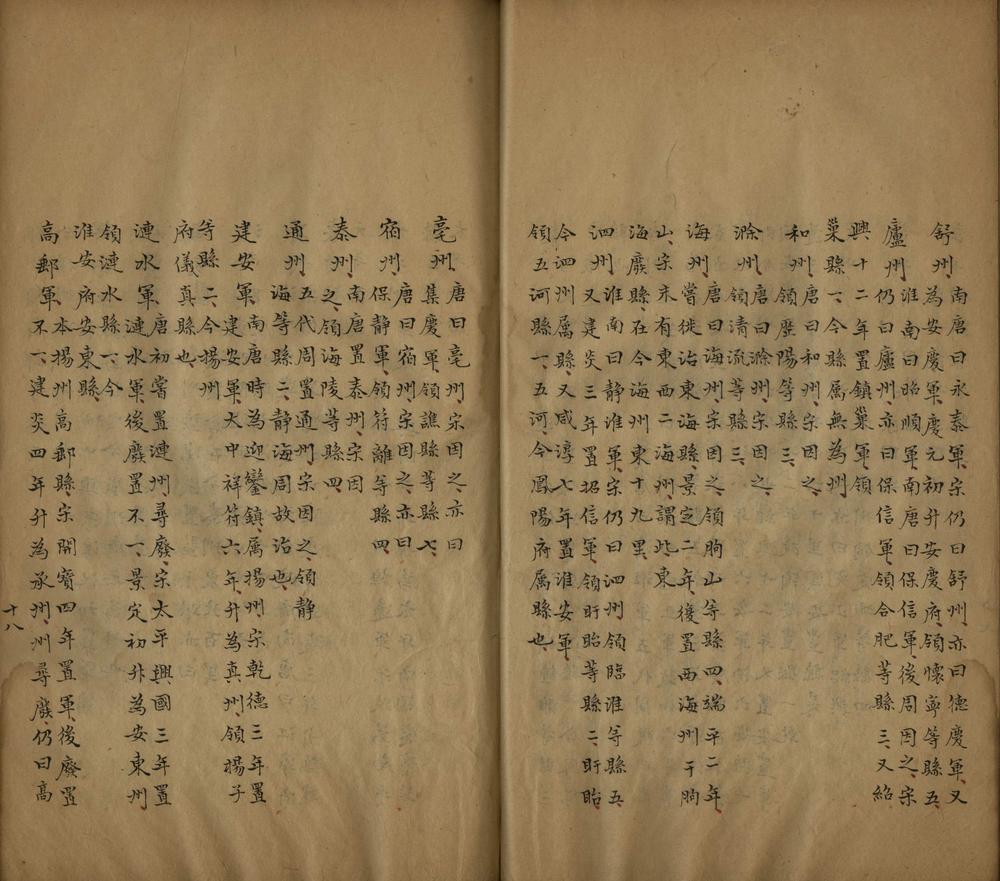 舒州南唐曰永泰軍宋仍曰舒州亦曰德慶軍又
為安慶軍慶元初升安慶府領懷寧等縣五
廬州淮南曰昭順軍南唐曰保信軍後周因之宋
仍曰廬州亦曰保信軍領合肥等縣三又紹
興十二年置鎮巢軍領
巢縣一今縣属無為州
和州唐曰和州宋因之
領歷陽等縣三
滁州唐曰滁州宋因之
領清流等縣三
海州唐曰海州宋因之領朐山等縣四端平二年
嘗徙治東海縣景定二年復置西海州于朐
山宋末有東西二海州謂此東
海廢縣在今海州東十九里
泗州淮南曰静淮軍宋仍曰泗州領臨淮等縣五
又建炎三年置招信軍領盱眙等縣二盱眙
今泗州属縣又咸淳七年置淮安軍
領五河縣一五河今鳳陽府属縣也
亳州唐曰亳州宋因之亦曰
集慶軍領譙縣等縣七
宿州唐曰宿州宋因之亦曰
保静軍領符離等縣四
泰州南唐置泰州宋因
之領海陵等縣四
通州五代周置通州宋因之領静
海等縣二静海周故治也
建安軍南唐時為迎鑾鎮属揚州宋乾德三年置
建安軍大中祥符六年升為真州領揚子
等縣二今揚州
府儀真縣也
漣水軍唐初嘗置漣州尋廢宋太平興國三年置
漣水軍後廢置不一景定初升為安東州
領漣水縣一今
淮安府安東縣
高郵軍本揚州高郵縣宋開寶四年置軍後廢置
不一建炎四年升為承州州尋廢仍曰高
十八